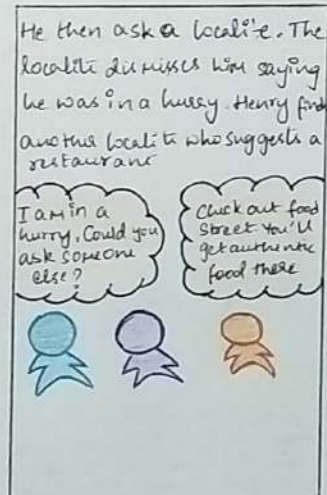 He then ask a localite. The
localite dismisses him saying
he was in a hurry. Henry find
another localite who suggests a
restaurant
I am in a
hurry. Could you
ask someone
else?
Check out food
street You'll
get authentic
food there